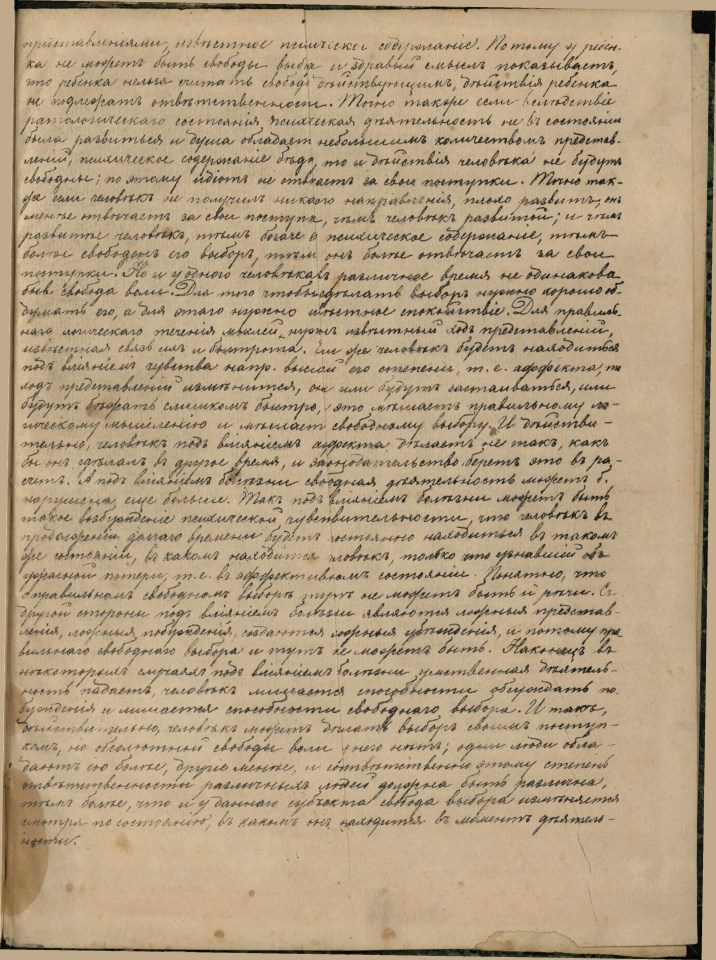 представленіями, извѣстное психическое содержаніе. Потому у ребен-
ка не можетъ быть свободы выбора и здравый смыслъ показываетъ,
что ребенка нельзя считать свободно дѣйствующимъ, дѣйствія ребенка
не подлежатъ отвѣтственности. Точно также если вслѣдствіе
патологическаго состоянія психическая дѣятельность не въ состояніи
была развиться и душа обладаетъ небольшимъ количествомъ представ-
леній, психическое содержаніе бѣдно, то и дѣйствія человѣка не будутъ
свободны; поэтому идіотъ не отвѣчаетъ за свои поступки. Точно так-
же если человѣкъ не получилъ никакого направленія, плохо развитъ, онъ
менѣе отвѣчаетъ за свои поступки, чѣмъ человѣкъ развитой; и чѣмъ
развитѣе человѣкъ, тѣмъ богаче его психическое содержаніе, тѣмъ
болѣе свободенъ его выборъ, тѣмъ онъ болѣе отвѣчаетъ за свои
поступки. Но и у одного человѣка въ различное время не одинакова
бываетъ свобода воли. Для того чтобы сдѣлать выборъ нужно хорошо об-
думать его, а для этого нужно извѣстное спокойствіе. Для правиль-
наго логическаго теченія мыслей нуженъ извѣстный ходъ представленій,
извѣстная связь ихъ и быстрота. Если же человѣкъ будетъ находиться
подъ вліяніемъ чувства напр. высшей его степени, т. е. аффекта, то
ходъ представленій измѣнится, они или будутъ застаиваться, или
будутъ бѣжать слишкомъ быстро, это мѣшаетъ правильному ло-
гическому мышленію и мѣшаетъ свободному выбору. И дѣйстви-
тельно, человѣкъ подъ вліяніемъ аффекта дѣлаетъ не такъ, какъ
бы онъ сдѣлалъ въ другое время, и законодательство беретъ это въ ра-
счетъ. А подъ вліяніемъ болѣзни свободная дѣятельность можетъ б.
нарушена еще больше. Такъ подъ вліяніемъ болѣзни можетъ быть
такое возбужденіе психической чувствительности, что человѣкъ въ
продолженіи долгаго времени будетъ постоянно находиться въ такомъ
же состояніи, въ какомъ находится человѣкъ, только что узнавшій объ
ужасной потери, т. е. въ аффективномъ состояніи. Понятно, что
о правильномъ свободномъ выборѣ тутъ не можетъ быть и рѣчи. Съ
другой стороны подъ вліяніемъ болѣзни являются ложныя представ-
ленія, ложныя побужденія, создаются ложныя убѣжденія, и потому пра-
вильнаго свободнаго выбора и тутъ не можетъ быть. Наконецъ въ
нѣкоторыхъ случаяхъ подъ вліяніемъ болѣзни умственная дѣятель-
ность падаетъ, человѣкъ лишается способности обсуждать по-
бужденія и лишается способности свободнаго выбора. И такъ,
дѣйствительно, человѣкъ можетъ дѣлать выборъ своимъ поступ-
камъ, но абсолютной свободы воли у него нѣтъ; одни люди обла-
даютъ ею болѣе, другіе менѣе, и соотвѣтственно этому степень
отвѣтственности различныхъ людей должна быть различна,
тѣмъ болѣе, что и у даннаго субъекта свобода выбора измѣняется
смотря по состоянію, въ какомъ онъ находится въ моментъ дѣятель-
ности.